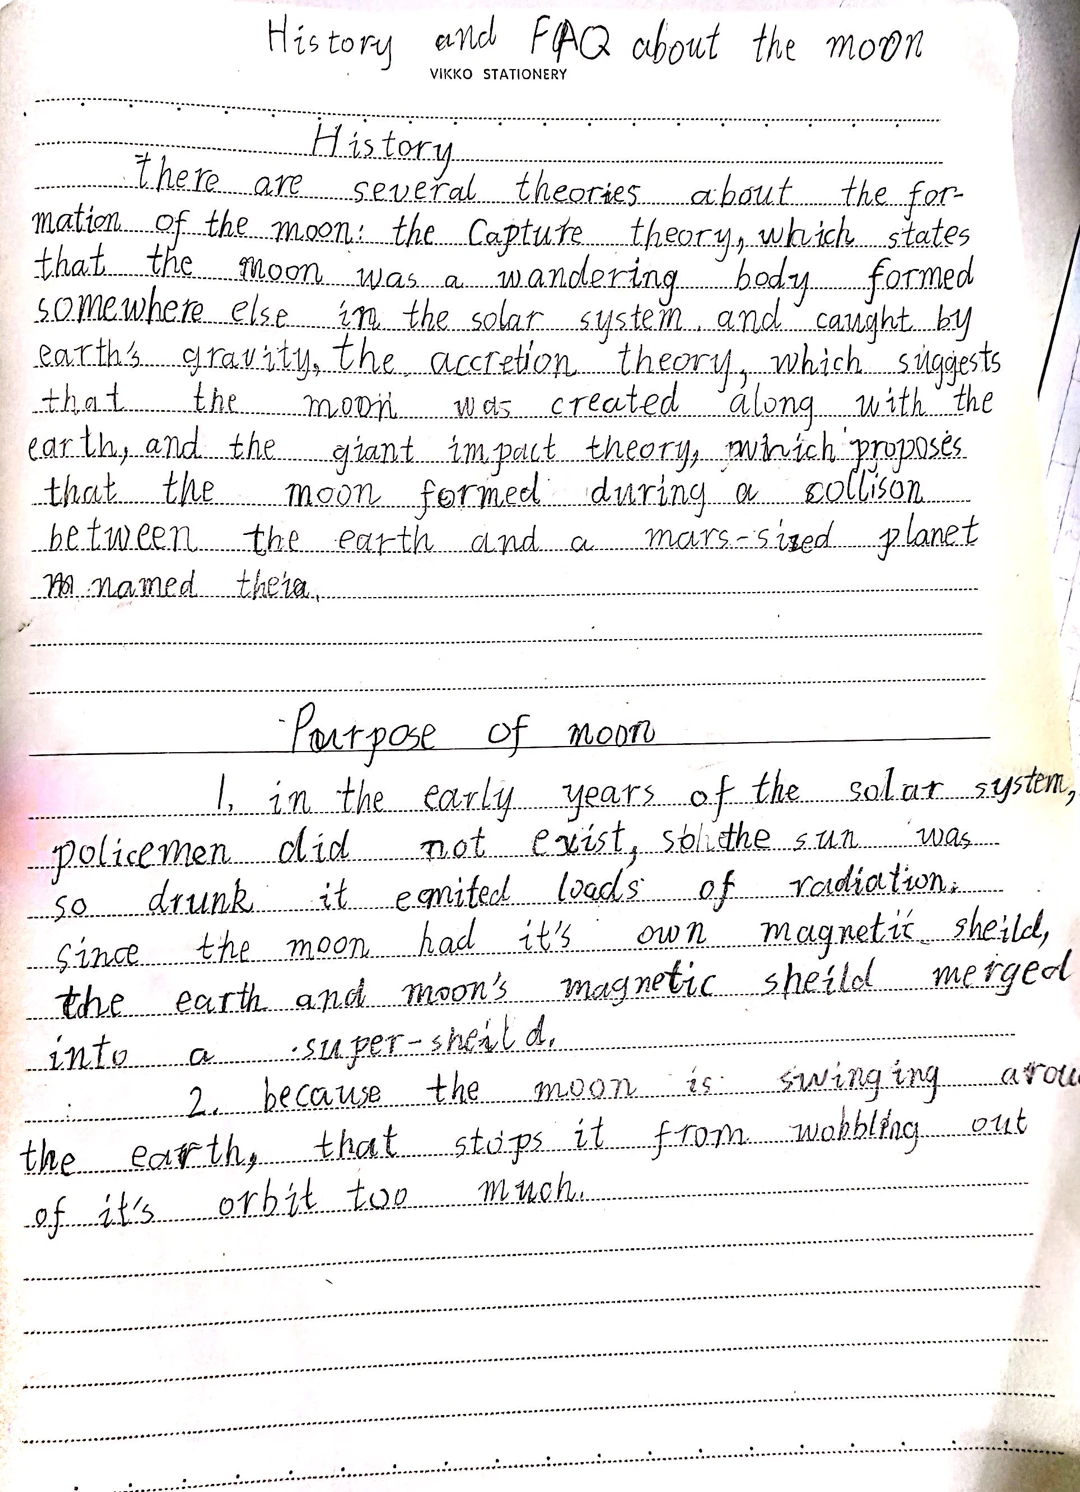 History and FAQ about the moon
VIKKO STATIONERY
History
there are several theories about the for-
mation of the moon: the Capture theory, which states
that the moon was a wandering body formed
somewhere else in the solar system and caught by
earth's gravity, the accretion theory, which suggests
that the moon was created along with the
earth, and the giant impact theory, which proposes
that the moon formed during a collison
between the earth and a mars-sized planet
named theia.
Purpose of moon
1. in the early years of the solar system,
policemen did not exist, so the sun was
so drunk it emited loads of radiation.
since the moon had it's own magnetic sheild,
the earth and moon's magnetic sheild merged
into a super-sheild.
2. because the moon is swinging arou
the earth, that stops it from wobbling out
of it's orbit too much.